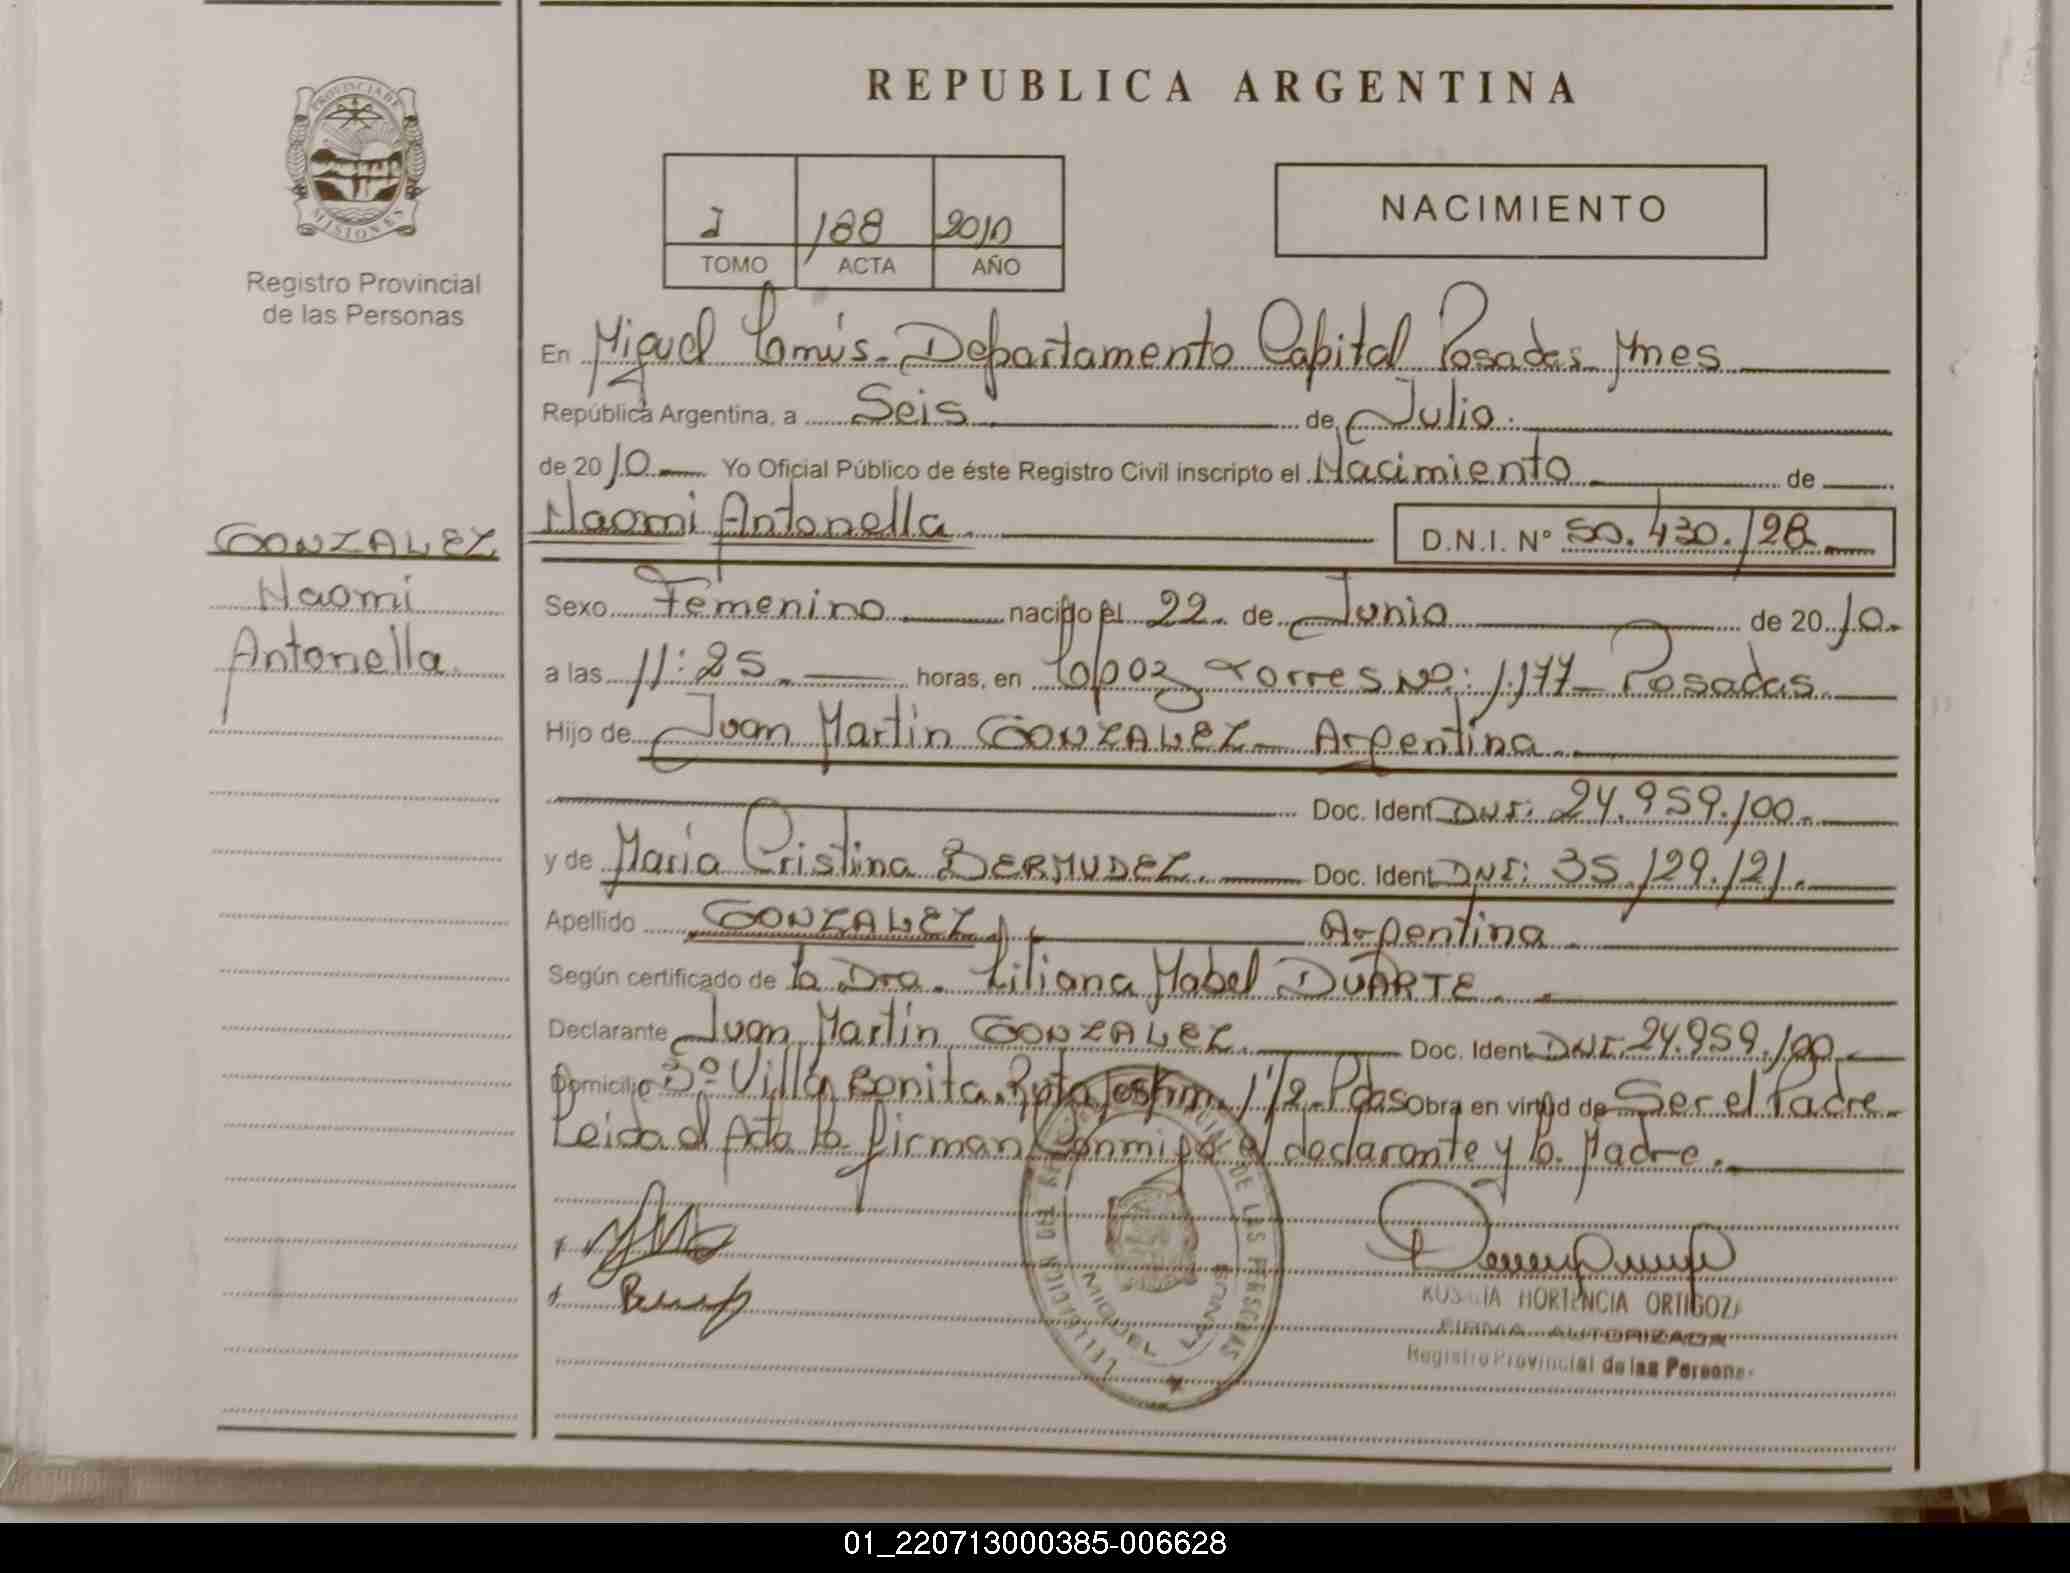 PROVINCIA DE
MISIONES
Registro Provincial
de las Personas
GONZALEZ
Naomi
Antonella.
REPUBLICA ARGENTINA
I 188 2010
TOMO ACTA AÑO
NACIMIENTO
En Miguel Lanús. Departamento Capital Posadas Mnes
República Argentina, a Seis de Julio.
de 2010 Yo Oficial Público de éste Registro Civil inscripto el Nacimiento de
Naomi Antonella. D.N.I. Nº 50.430.128
Sexo Femenino nacido el 22. de Junio de 2010.
a las 11:25. horas, en López Torres Nº: 1.177 Posadas
Hijo de Juan Martín GONZALEZ Argentina
Doc. Ident DNI: 24.959.100.
y de María Cristina BERMUDEZ. Doc. Ident DNI: 35.129.121.
Apellido GONZALEZ Argentina.
Según certificado de la Dra. Liliana Mabel DUARTE.
Declarante Juan Martín GONZALEZ. Doc. Ident DNI: 24.959.100
Domicilio Bº Villa Bonita. Ruta 105 km. 1 1/2. Pdas Obra en virtud de Ser el Padre.
Leida el Acta la firman conmigo el declarante y la Madre.
DE LAS PERSONAS
MIGUEL LANUS
HORTENCIA ORTIGOZA
FIRMA AUTORIZADA
Registro Provincial de las Persona
01_220713000385-006628